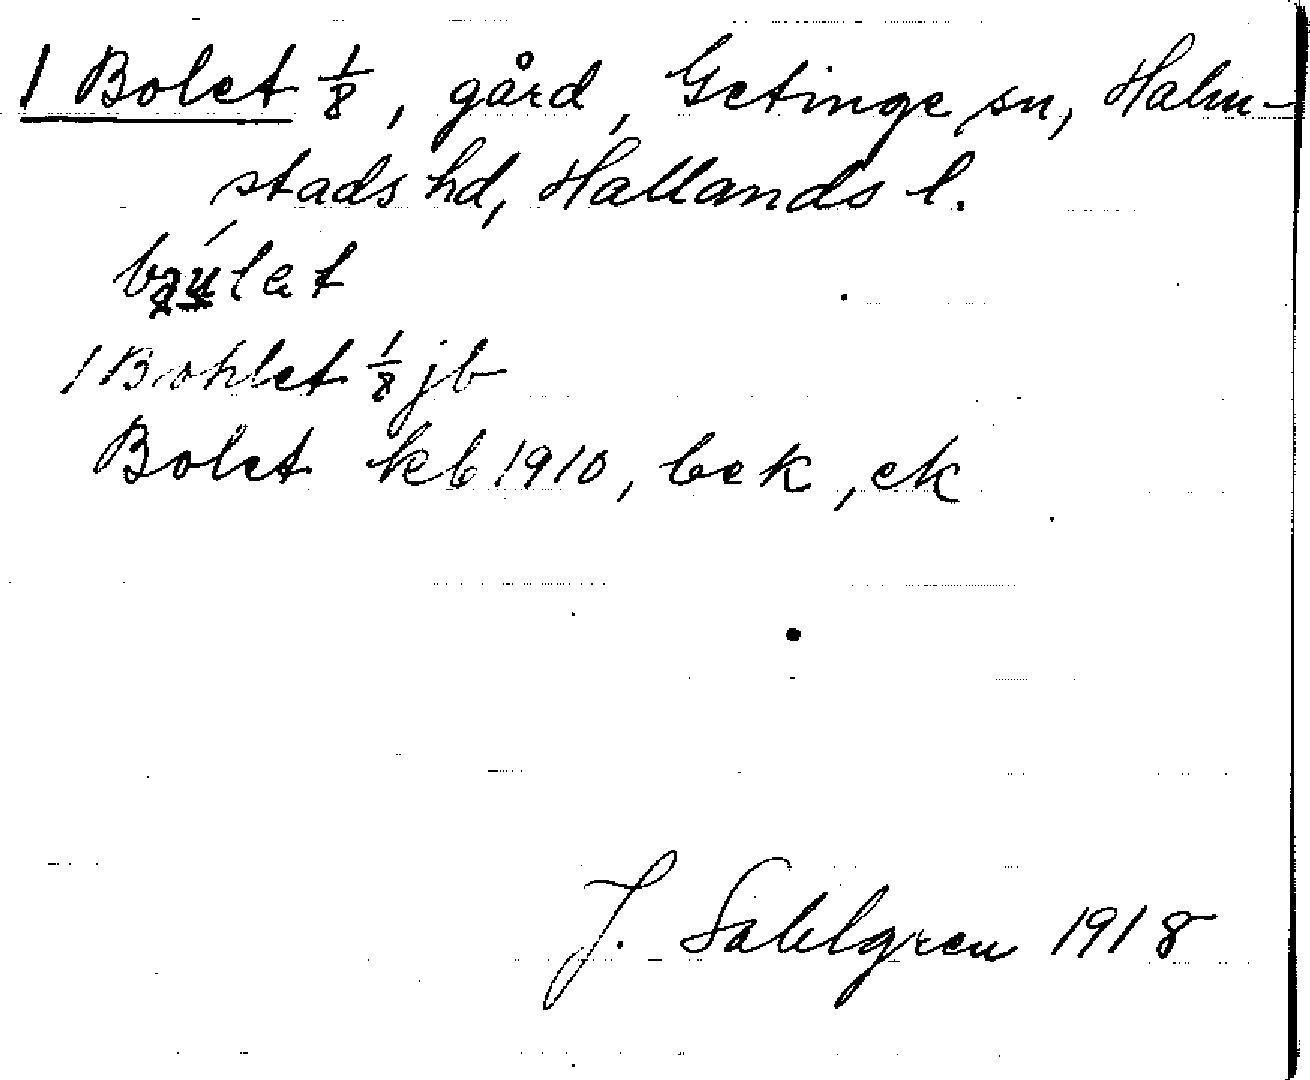 1 Bolet 1/8, gård, Getinge sn, Halm-
stads hd, Hallands l.
1 Bohlet 1/8 jb
Bolet kb 1910, bek, ek
J. Sahlgren 1918